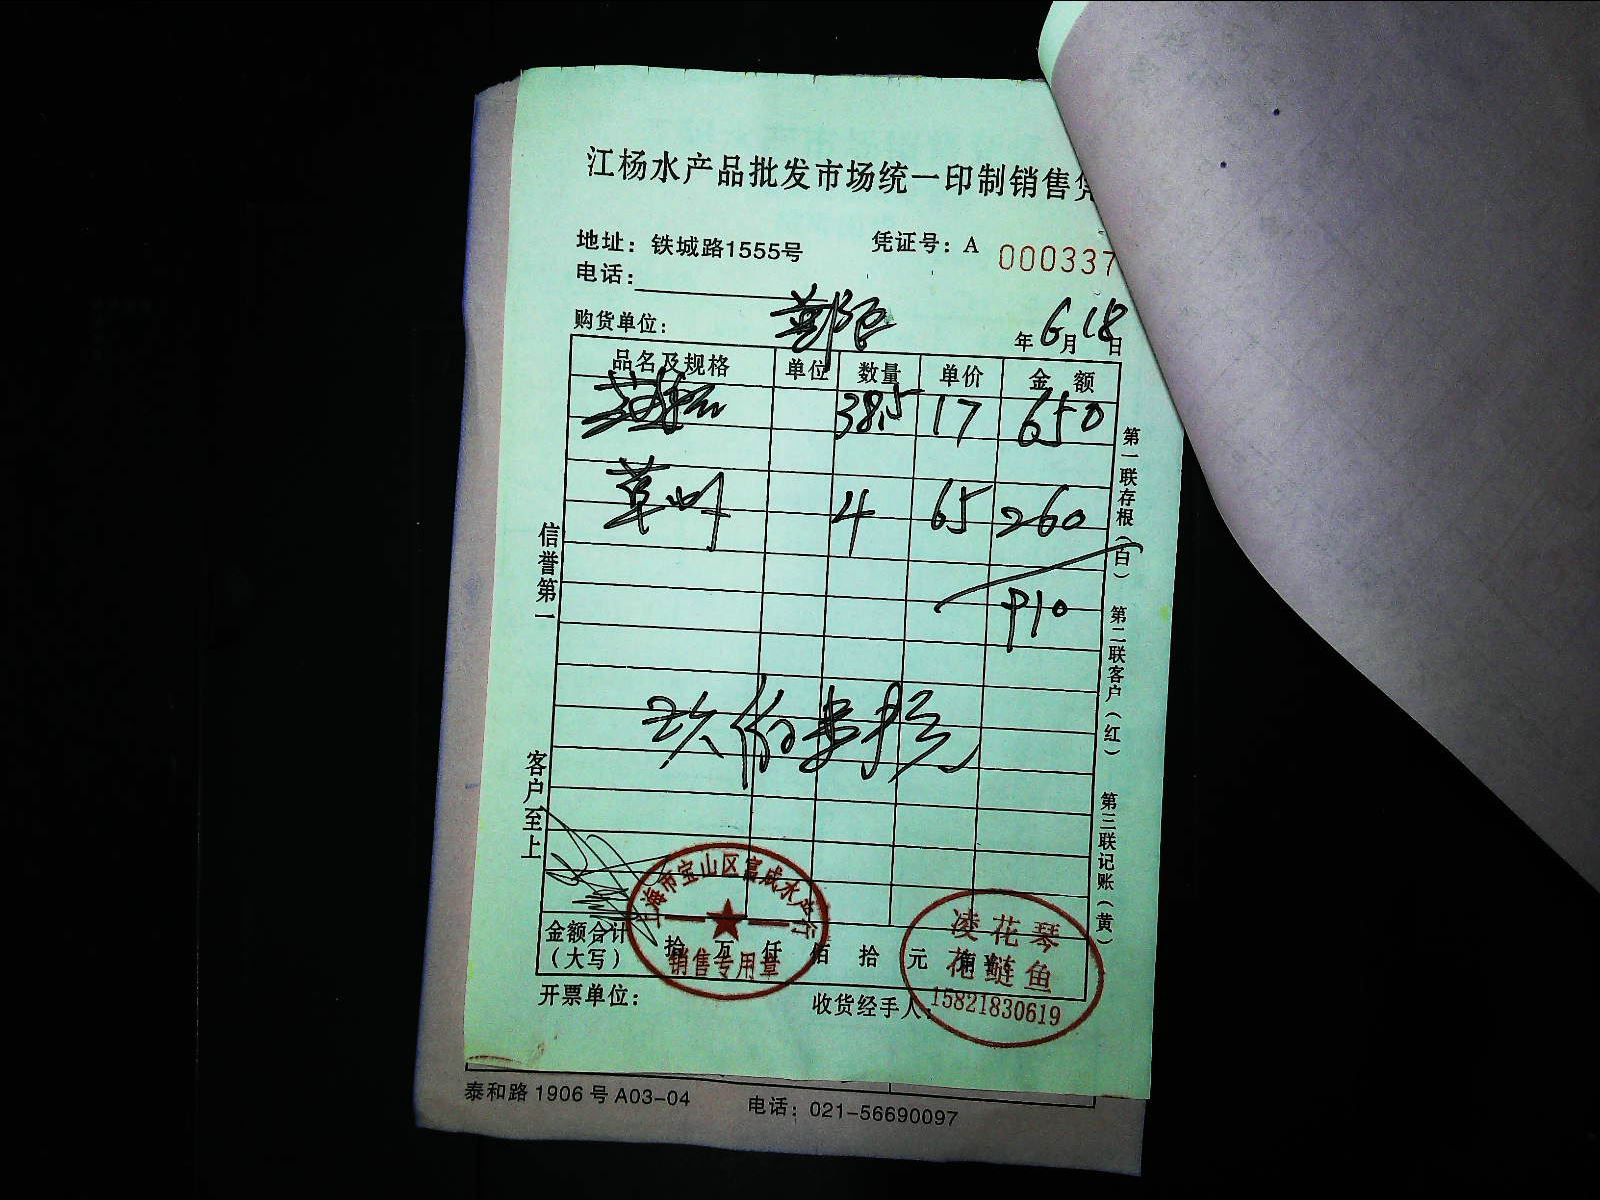 江杨水产品批发市场统一印制销售凭
地址：铁城路1555号 凭证号：A 000337
电话：
购货单位： 年6月18日
品名及规格 单位 数量 单价 金额
38.5 17 650
草 4 65 260
910
玖佰壹拾元
信誉第一 客户至上
第一联存根（白） 第二联客户（红） 第三联记账（黄）
金额合计（大写） 拾 万 仟 佰 拾 元 角
上海市宝山区富成水产行
销售专用章
凌花琴
花鲢鱼
15821830619
开票单位： 收货经手人：
泰和路1906号A03-04 电话：021-56690097